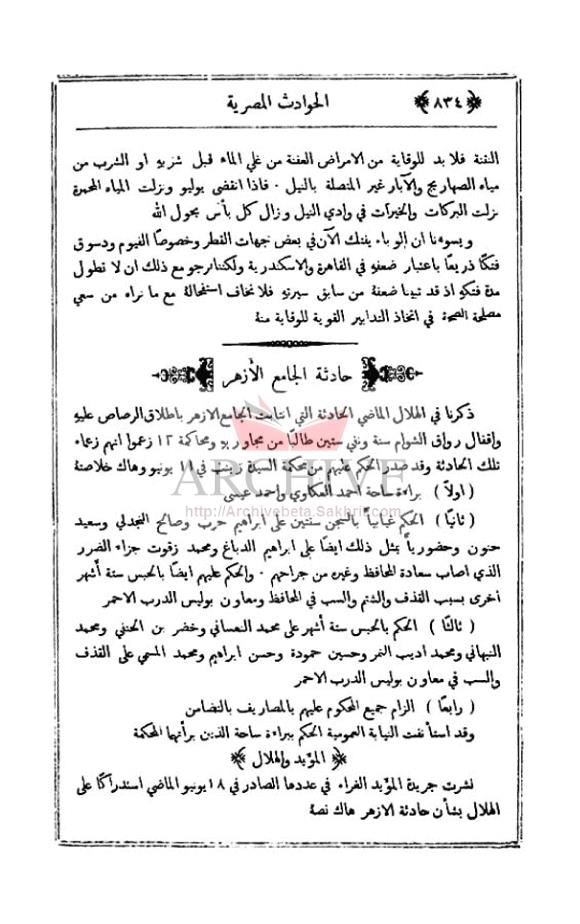 ﴿٨٣٤﴾ الحوادث المصرية
النقنة فلا بد للوقاية من الامراض العفنة من غلي الماء قبل شربهِ او الشرب من
مياه الصهاريج والآبار غير المتصلة بالنيل ٠ فاذا انقضى يوليو ونزلت المياه المحمرة
نزلت البركات والخيرات في وادي النيل وزال كل بأس بحول الله
ويسوءنا ان الوباء يفتك الآن في بعض جهات القطر وخصوصًا الفيوم ودسوق
فتكًا ذريعًا باعتبار ضعفهِ في القاهرة والاسكندرية ولكننا نرجو مع ذلك ان لا تطول
مدة فتكهِ اذ قد تبينا ضعفهُ من سابق سيرتهِ فلا نخاف استفحالهُ مع ما نراه من سعي
مصلحة الصحة في اتخاذ التدابير القوية للوقاية منهُ
حادثة الجامع الأزهر
ذكرنا في الهلال الماضي الحادثة التي انتابت الجامع الازهر باطلاق الرصاص عليهِ
واقفال رواق الشوام سنة ونفي ستين طالبًا من مجاوريهِ ومحاكمة ١٢ زعموا انهم زعماء
تلك الحادثة وقد صدر الحكم عليهم من محكمة السيدة زينب في ١١ يونيو وهاك خلاصتهُ
( اولاً ) براءة ساحة احمد العكاوي واحمد عيسى
( ثانيًا ) الحكم غيابيًا بالسجن سنتين على ابراهيم حرب وصالح النجدلي وسعيد
حنون وحضوريًا بمثل ذلك ايضًا على ابراهيم الدباغ ومحمد زقوت جزاء الضرر
الذي اصاب سعادة المحافظ وغيره من جراحهم ٠ والحكم عليهم ايضًا بالحبس ستة أشهر
اخرى بسبب القذف والشتم والسب في المحافظ ومعاون بوليس الدرب الاحمر
( ثالثًا ) الحكم بالحبس ستة أشهر على محمد النعساني وخضر بن الحنفي ومحمد
النبهاني ومحمد اديب النمر وحسين حمودة وحسن ابراهيم ومحمد المسمي على القذف
والسب في معاون بوليس الدرب الاحمر
( رابعًا ) الزام جميع المحكوم عليهم بالمصاريف بالتضامن
وقد استأنفت النيابة العمومية الحكم ببراءة ساحة الذين برأتهما المحكمة
﴿ المؤيد والهلال ﴾
نشرت جريدة المؤيد الغراء في عددها الصادر في ١٨ يونيو الماضي استدراكًا على
الهلال بشأن حادثة الازهر هاك نصهُ
ARCHIVE
http://Archivebeta.Sakhrit.com